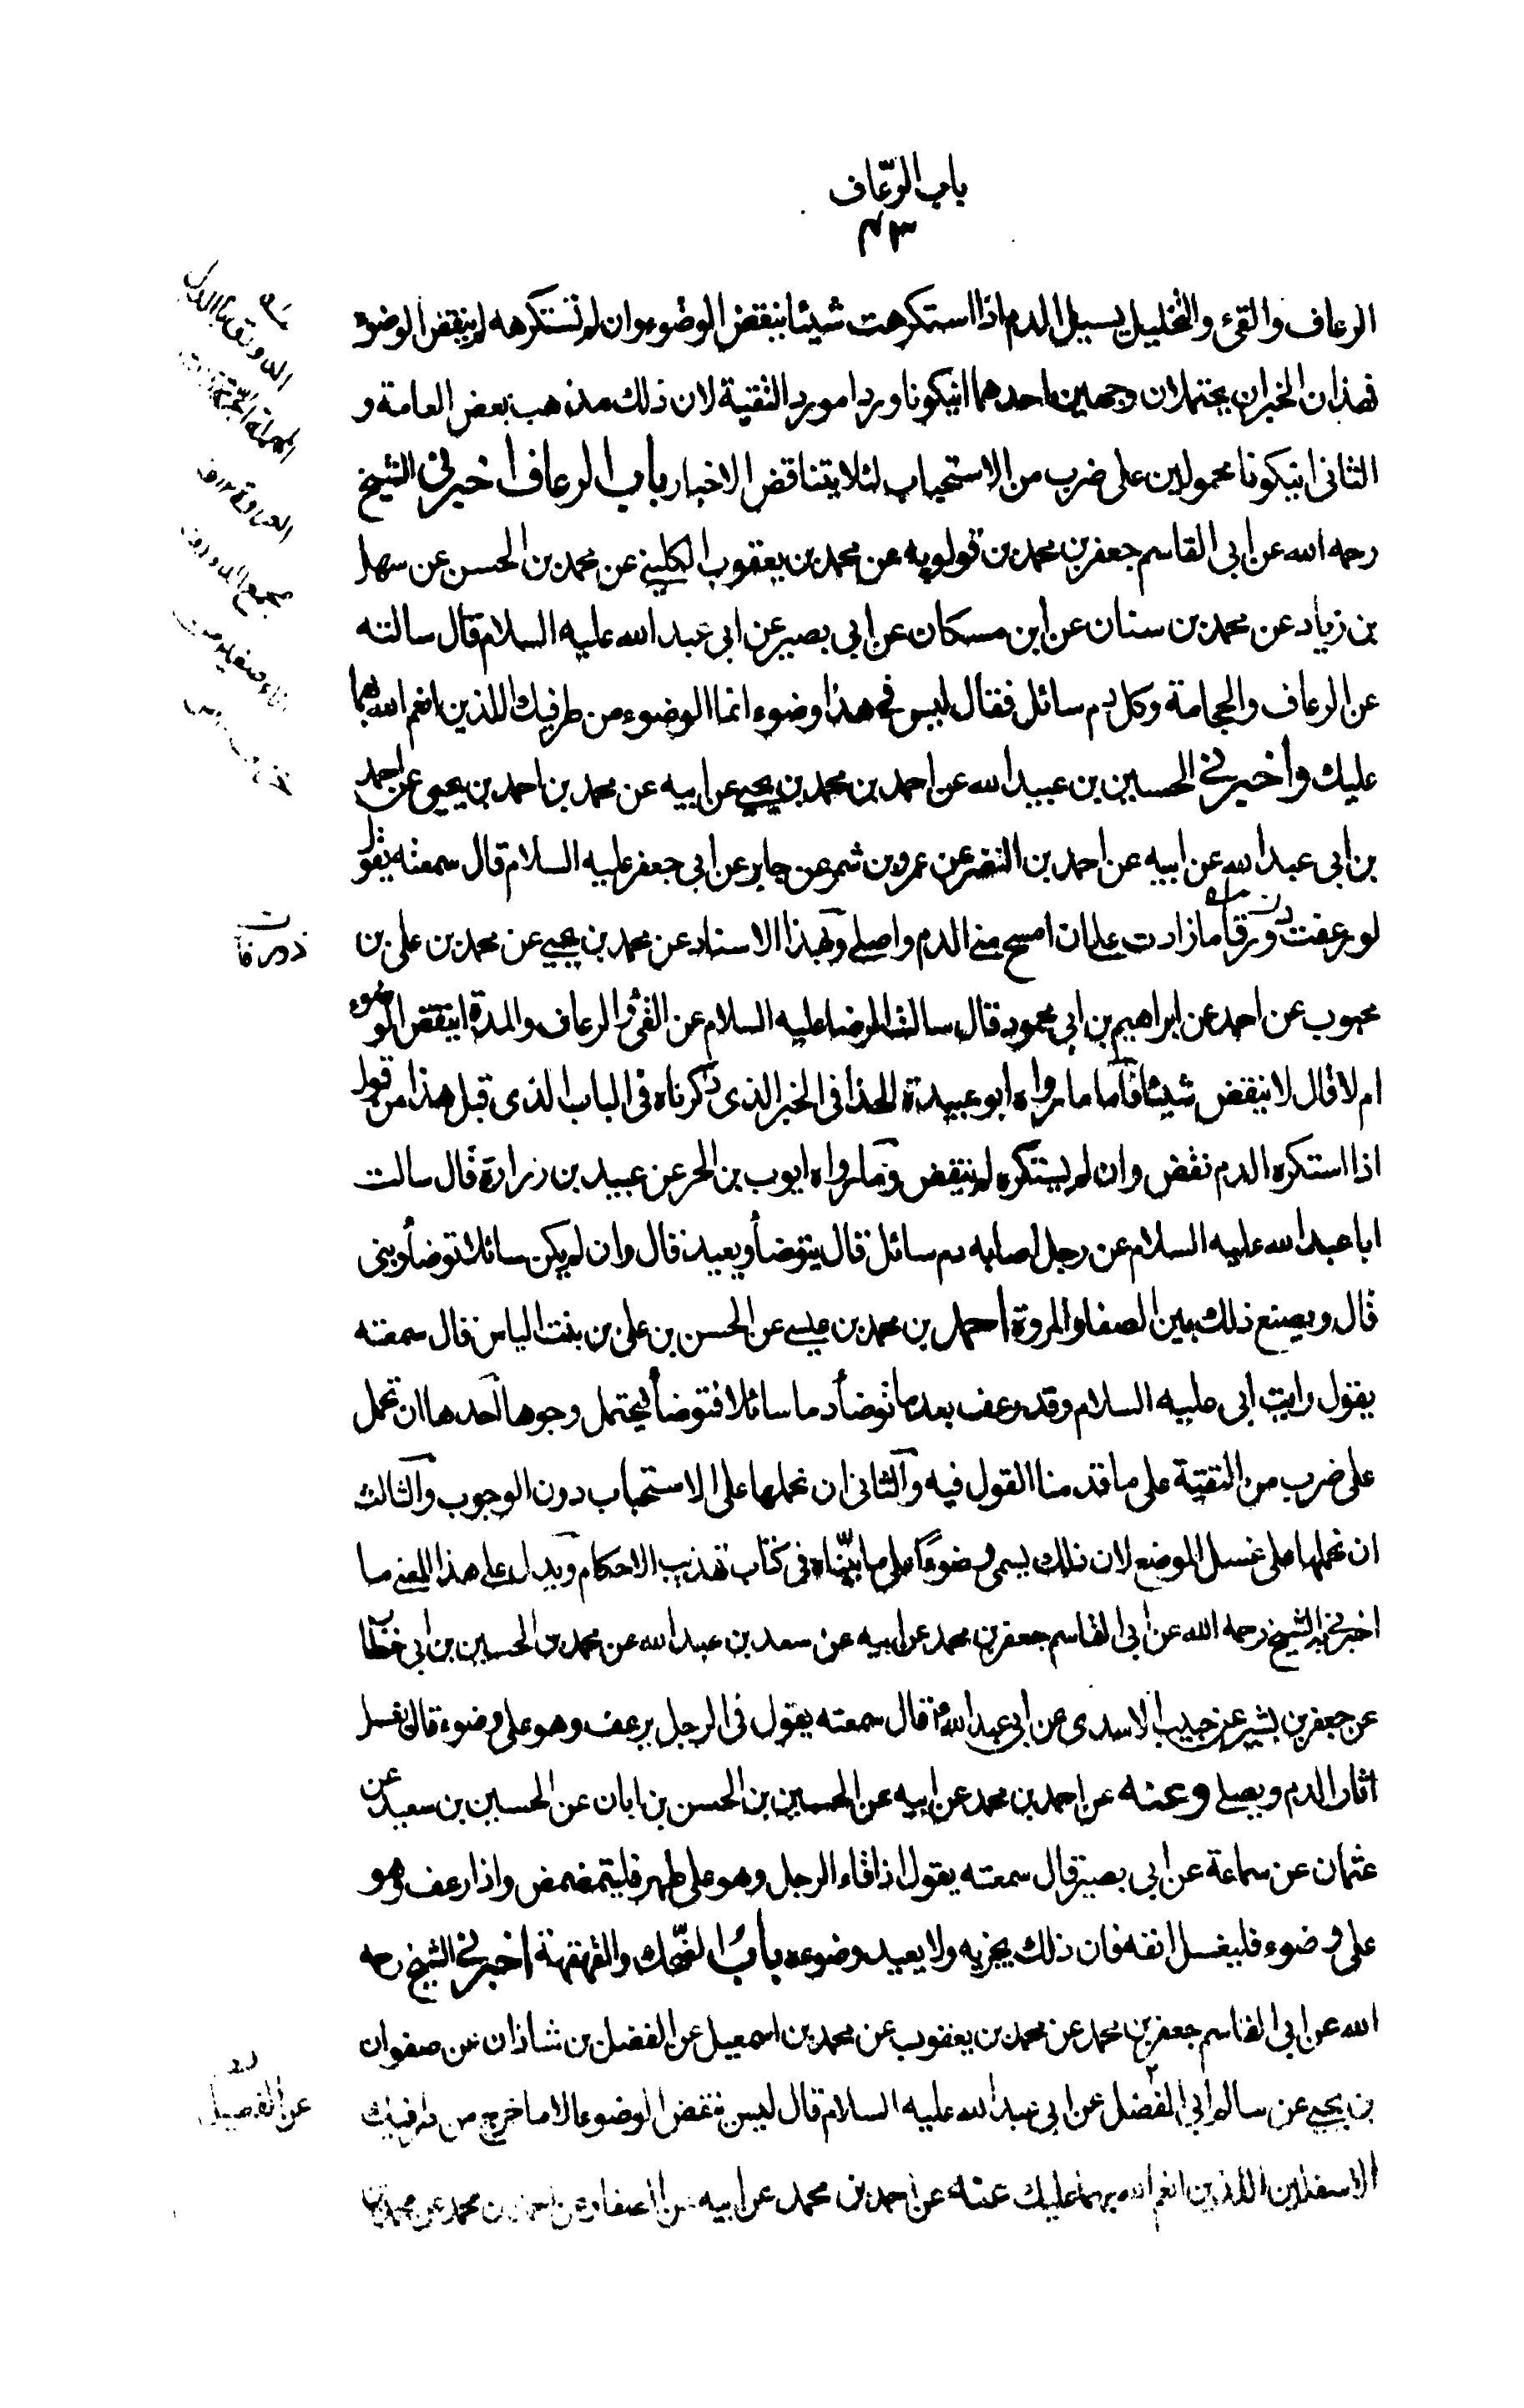 باب الرّعاف
٤٣
الرعاف والقئ والتخليل يسيل الدم اذا استكرهت شيئا ينقض الوضوء وان لم تستكرهه لم ينقض الوضوء
فهذان الخبران يحتملان وجهين احدهما ان يكونا وردا مورد التقية لان ذلك مذهب بعض العامة و
الثانى ان يكونا محمولين على ضرب من الاستحباب لئلا يتناقض الاخبار باب الرعاف اخبرنى الشيخ
رحمه الله عن ابى القاسم جعفر بن محمد بن قولويه عن محمد بن يعقوب الكلينى عن محمد بن الحسن عن سهل
بن زياد عن محمد بن سنان عن ابن مسكان عن ابى بصير عن ابى عبد الله عليه السلام قال سالته
عن الرعاف والحجامة وكل دم سائل فقال ليس فى هذا وضوء انما الوضوء من طرفيك اللذين انعم الله بهما
عليك واخبرنى الحسين بن عبيد الله عن احمد بن محمد بن يحيى عن ابيه عن محمد بن احمد بن يحيى عن احمد
بن ابى عبد الله عن ابيه عن احمد بن النضر عن عمرو بن شمر عن جابر عن ابى جعفر عليه السلام قال سمعته يقول
لو رعفت دورقا ما زادت على ان امسح منى الدم واصلى وبهذا الاسناد عن محمد بن يحيى عن محمد بن على بن
محبوب عن احمد عن ابراهيم بن ابى محمود قال سالت الرضا عليه السلام عن القئ والرعاف والمدة اينقض الوضوء
ام لا قال لا ينقض شيئا فاما ما رواه ابو عبيدة الحذا فى الخبر الذى ذكرناه فى الباب الذى قبل هذا من قوله
اذا استكره الدم نقض وان لم يستكره لم ينقض وما رواه ايوب بن الحر عن عبيد بن زرارة قال سالت
ابا عبد الله عليه السلام عن رجل اصابه دم سائل قال يتوضأ ويعيد قال وان لم يكن سائلا توضأ وبنى
قال ويصنع ذلك بين الصفا والمروة احمد بن محمد بن عيسى عن الحسن بن على بن بنت الياس قال سمعته
يقول رايت ابى عليه السلام وقد رعف بعد ما توضأ دما سائلا فتوضأ يحتمل وجوها احدها ان تحمل
على ضرب من التقية على ما قدمنا القول فيه والثانى ان نحملها على الاستحباب دون الوجوب والثالث
ان نحملها على غسل الموضع لان ذلك يسمى وضوءًا على ما بيّناه فى كتاب تهذيب الاحكام ويدل على هذا المعنى ما
اخبرنى به الشيخ رحمه الله عن ابى القاسم جعفر بن محمد عن ابيه عن سعد بن عبد الله عن محمد بن الحسين بن ابى خطاب
عن جعفر بن بشير عن حبيب الاسدى عن ابى عبد الله ع قال سمعته يقول فى الرجل يرعف وهو على وضوء قال يغسل
اثار الدم ويصلى وعنه عن احمد بن محمد عن ابيه عن الحسين بن الحسن بن ابان عن الحسين بن سعيد عن
عثمان عن سماعة عن ابى بصير قال سمعته يقول اذا قاء الرجل وهو على طهر فليتمضمض واذا رعف وهو
على وضوء فليغسل انفه فان ذلك يجزيه ولا يعيد وضوءه بابُ الضّحك والقهقهة اخبرنى الشيخ رحمه
الله عن ابى القاسم جعفر بن محمد عن محمد بن يعقوب عن محمد بن اسمعيل عن الفضل بن شاذان عن صفوان
بن يحيى عن سالم ابى الفضل عن ابى عبد الله عليه السلام قال ليس ينقض الوضوء الا ما خرج من طرفيك
الاسفلين اللذين انعم الله بهما عليك عنه عن احمد بن محمد عن ابيه عن الصفار عن احمد بن محمد عن محمد بن
دورقا
عن الفضيل